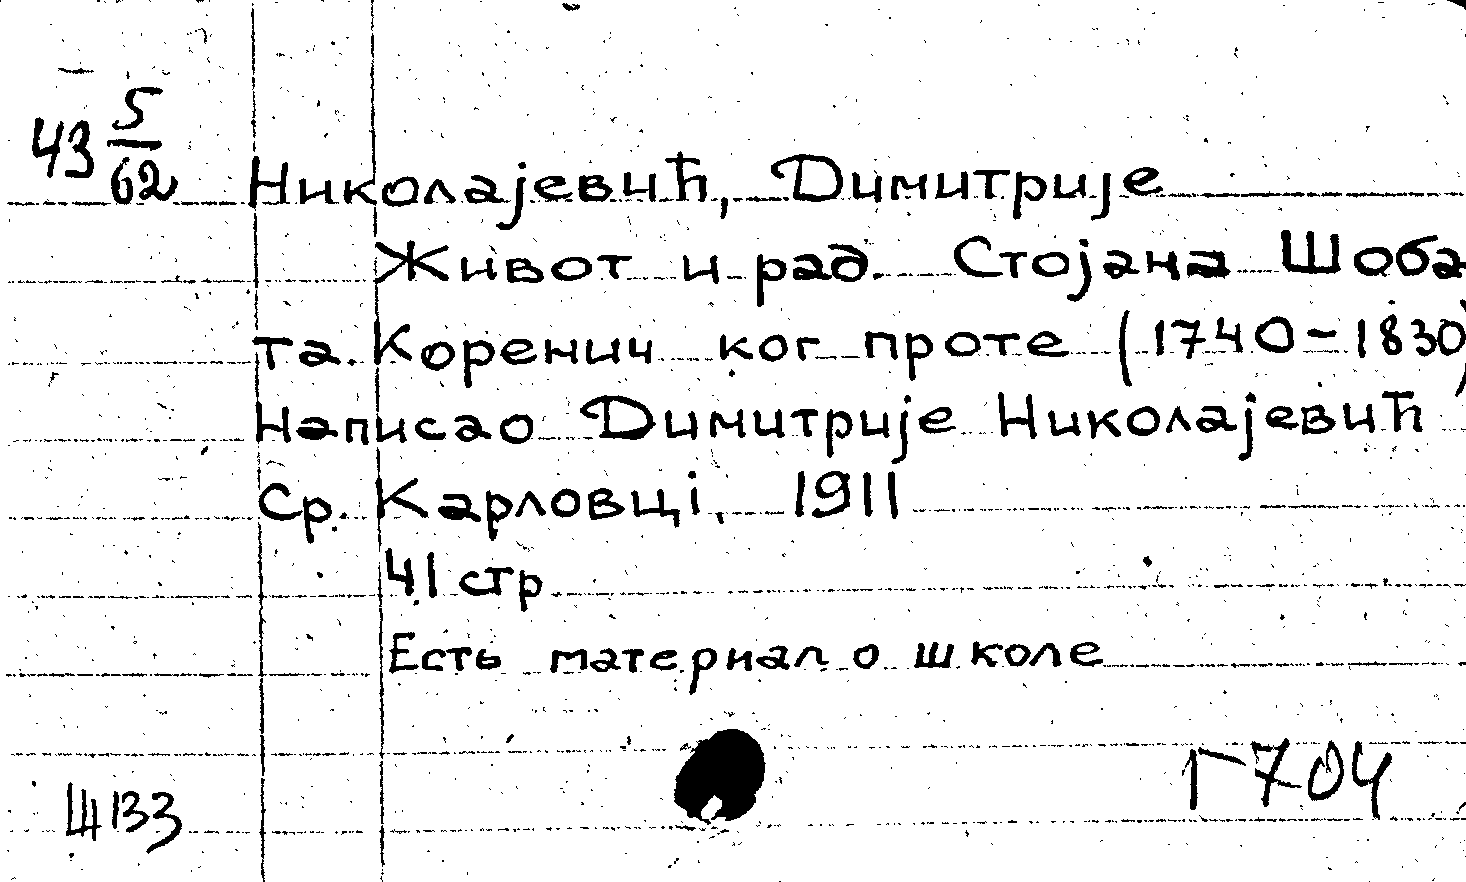 43 5/62
Николајевић, Димитрије
Живот и рад. Стојана Шоба
та. Коренич ког проте (1740-1830)
Написао Димитрије Николајевић
Ср. Карловці, 1911
41 стр
Есть материал о школе
Г-704
Щ133